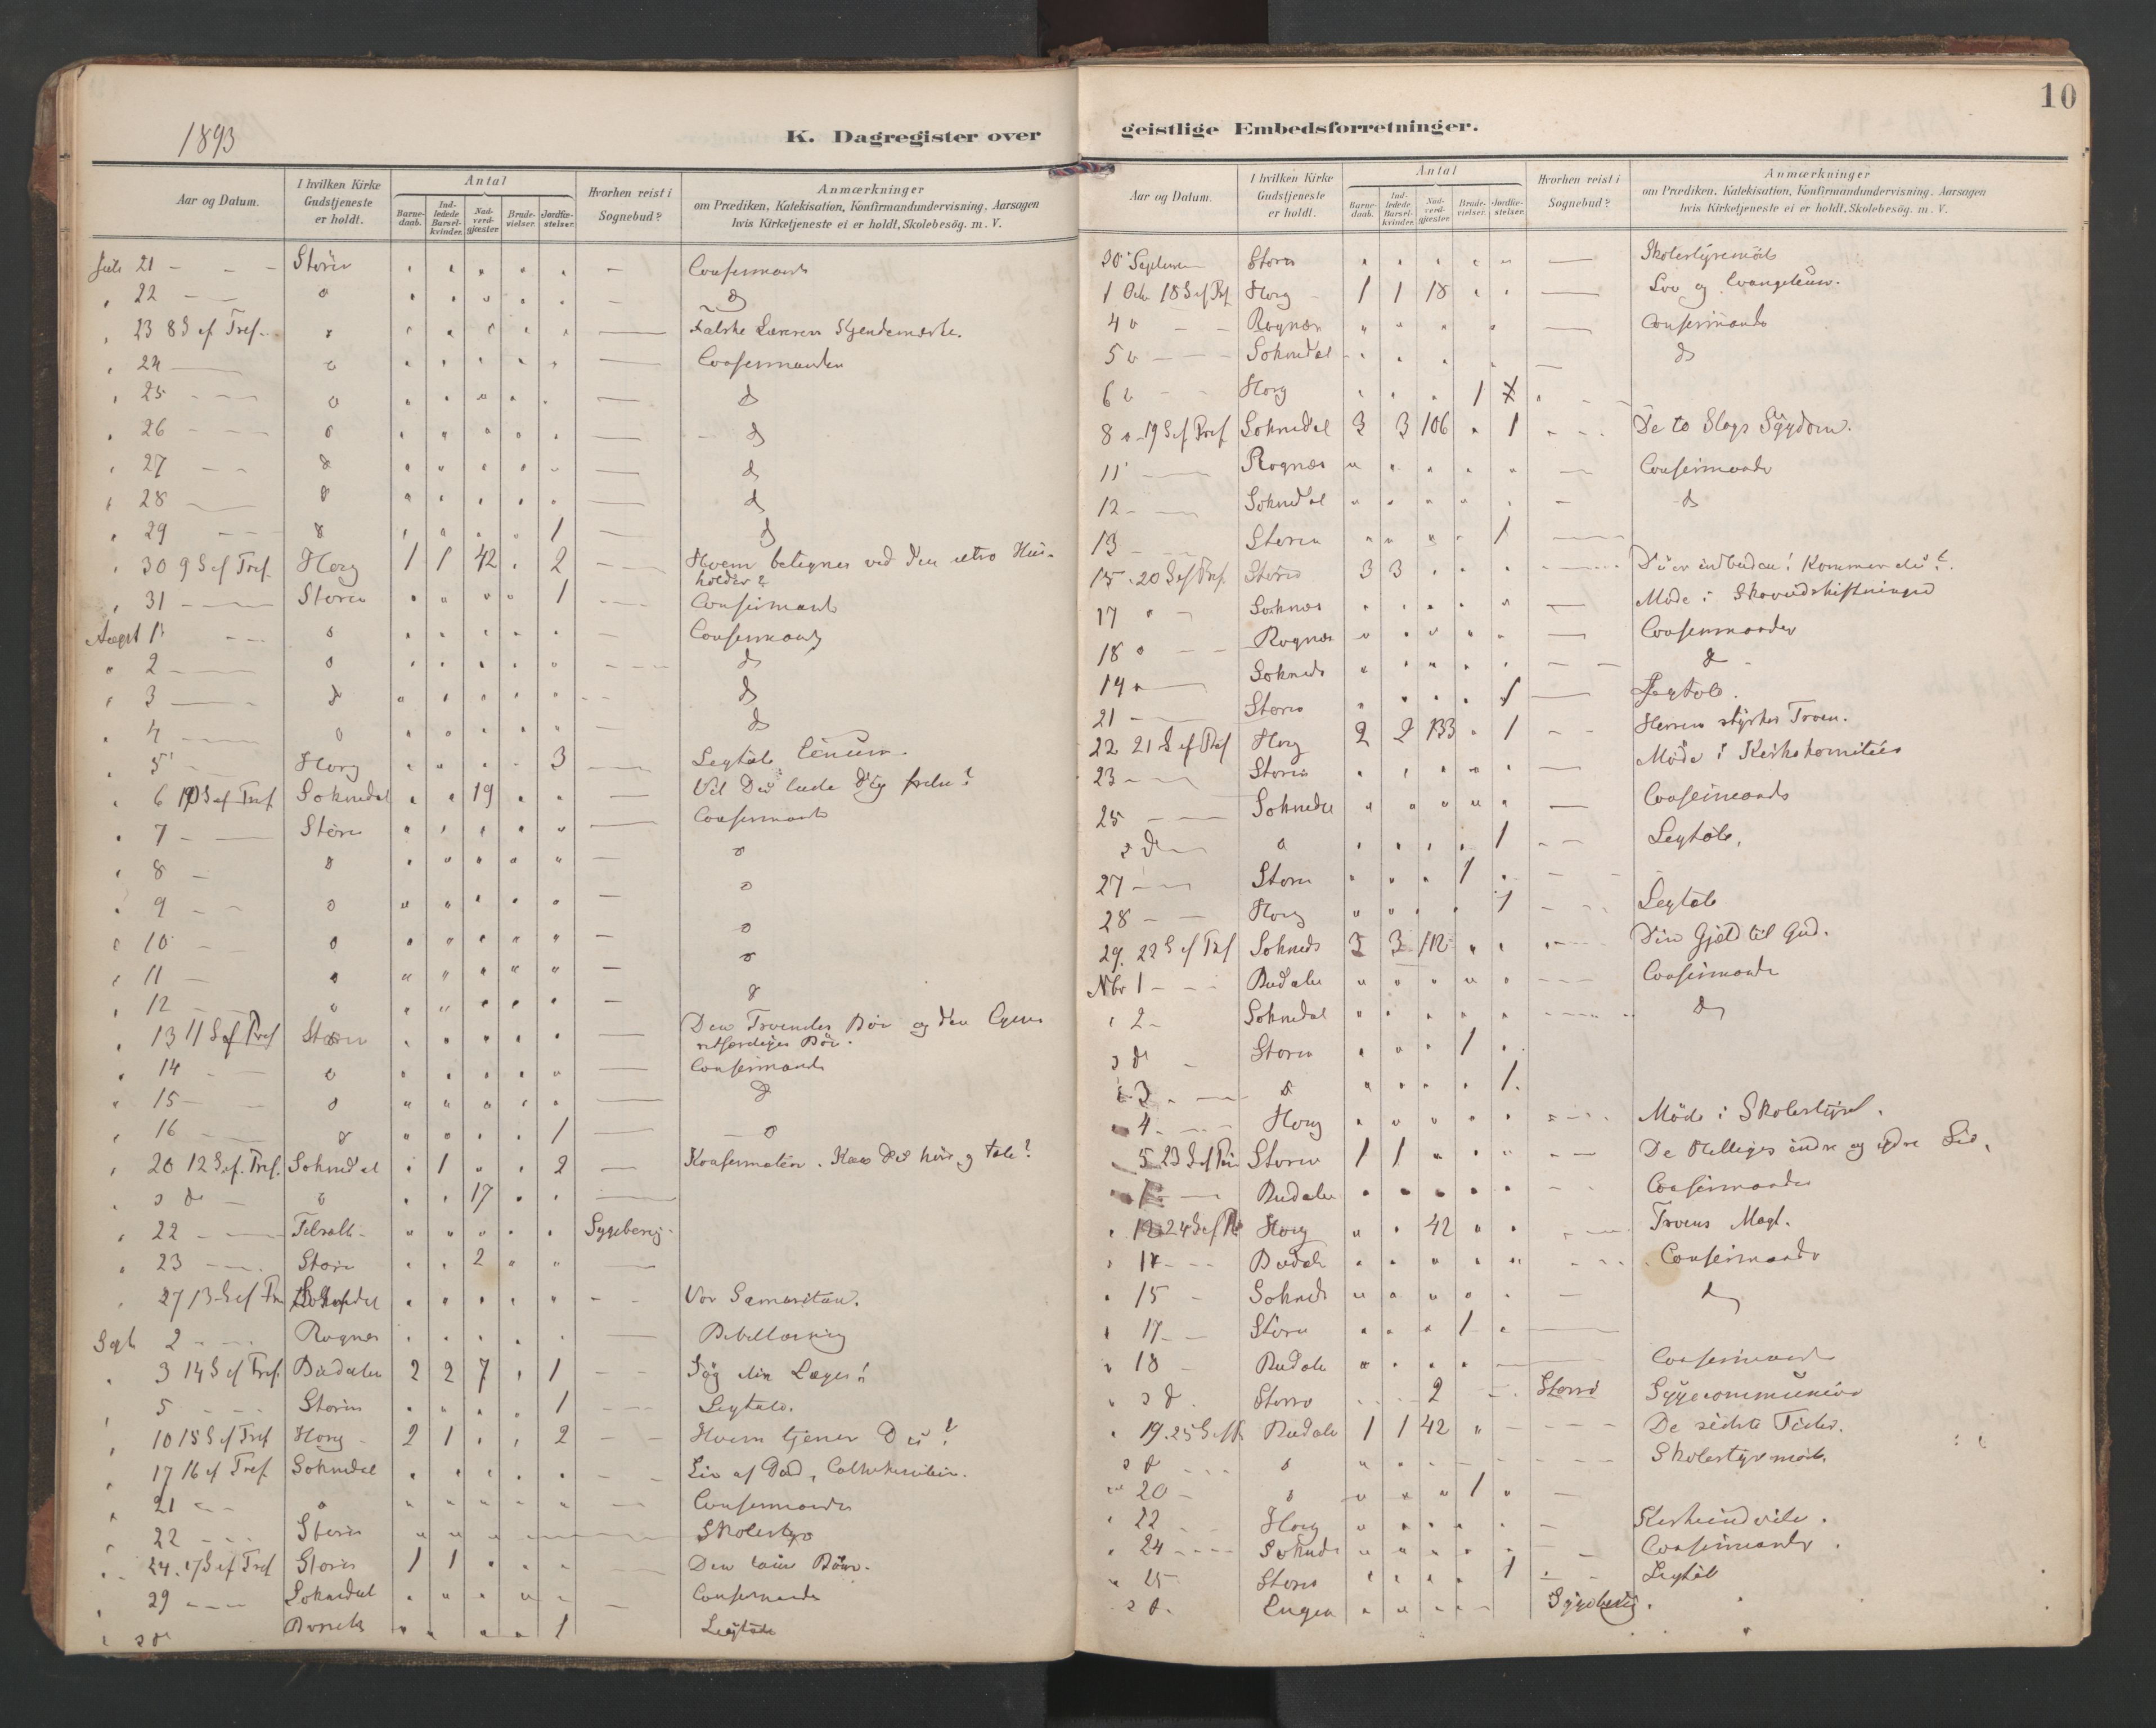 1893
K. Dagregister over
Aar og Datum.
I hvilken Kirke Gudstjeneste er holdt.
Antal
Barne-daab.
Ind-ledede Barsel-kvinder.
Nad-verd-gjæster.
Brude-vielser.
Jordfæ-stelser.
Hvorhen reist i Sognebud?
Anmærkninger
om Prædiken, Katekisation, Konfirmandundervisning, Aarsagen
hvis Kirketjeneste ei er holdt, Skolebesög. m. V.
Juli 21 - - - Stören " " " " " — Confirmand
" 22 - - d " " " " " — d
" 23 8 S ef Tref. " " " " " " —
" 24 — " " " " " " —
" 25 - - d " " " " " — d
" 26 - - d " " " " " — d
" 27 - - d " " " " " — d
" 28 — d " " " " " — d
" 29 - - d " " " " 1 — d
" 30 9 S ef Tref. Horg 1 1 42 " 2 — Hvem betegnes ved den utro Hus-
holder?
" 31 — Storen " " " " 1 — Confirmand
Augst 1 - - d " " " " " — Confirmand
" 2 — d " " " " " — d
" 3 — d " " " " " — d
" 4 — d " " " " " — d
" 5 - Horg " " " " 3 —
" 6 10 S ef Tref Soknedal " " 19 " " — Vil Du lade Dig frelse?
" 7 - Stören " " " " " — Confirmand
" 8 - d " " " " " — d
" 9 - - d " " " " " — d
" 10 - d " " " " " — d
" 11 — d " " " " " — d
" 12 - d " " " " " — d
" 13 11 S ef Tref Storen " " " " " — Den Troendes Bön og den Egen-
retfærdiges Bön.
" 14 - - d " " " " " — Confirmand
" 15 — d " " " " " — d
" 16 — d " " " " 1 — d
" 20 12 S ef. Tref. Soknedal " 1 " " 2 — Konfirmation. Kan du höre og tale?
" s d — d " " 17 " " —
" 22 — " " " " " Sygebesög.
" 23 — Storen " " 2 " " —
" 27 13 S ef Tref Soknedal " " " " " — Vor Samaritan.
Sept 2 - - Rognes " " " " " — Bibellæsning
" 3 14 S ef Tref. Budalen 2 2 7 " 1 — Søg din Læge!
" 5 - - Storen " " " " 1 — Ligtale.
" 10 15 S ef Tref Horg 2 1 " " 2 — Hvem tjener Du?
" 17 16 ef Tref Soknedal " " " " " — Liv af Død,
" 21 - - d " " " " " — Confirmander
" 22 - - Storen " " " " " — Skolestyre
" 24. 17 S ef Tref Storen 1 1 " " " —
" 29 — Soknedal " " " " " — Confirmander
" s d " " " " 1 Ligtale
10
geistlige Embedsforretninger.
Aar og Datum.
I hvilken Kirke Gudstjeneste er holdt.
Antal
Barne-daab.
Ind-ledede Barsel-kvinder.
Nad-verd-gjæster.
Brude-vielser.
Jordfæ-stelser.
Hvorhen reist i Sognebud?
Anmærkninger
om Prædiken, Katekisation, Konfirmandundervisning, Aarsagen
hvis Kirketjeneste ei er holdt, Skolebesög. m. V.
30 September Storen " " " " " — Skolestyremöte
1 Octr 18 S ef Tref Horg 1 1 18 " " — Lov og Evangelium.
4 " - - Rognes " " " " " — Confirmander
5 " — Soknedal " " " " " — d
6 " - - Horg " " " 1 "
8 " 19 S ef Tref Soknedal 3 3 106 " 1 — De to Slags Sygdom.
11 — Rognes " " " " " — Confirmander
12 — Soknedal " " " " " — d
13 — Storen " " " " 1 —
15 " 20 S ef Tref. Storen 3 3 " " " — Du er indbuden! Kommer du?
17 " - " " " " " — Möde i
18 " - - Rognes " " " " " — Confirmander
19 " — Sokneds " " " " " — d
21 — Storen " " " " 1 — Ligtale.
22 21 S ef Tref Horg 2 2 133 " 1 — Herren styrker Troen.
23 — Storen " " " " " — Möde i Kirkekomiteen
25 — Soknedal " " " " " — Confirmands
s d — d " " " " 1 — Ligtale.
27 — Storen " " " 1 " —
28 - - Horg " " " " 1 — Ligtale
29. 22 S ef Tref Sokneds 3 3 112 " " — Din Gjæld til Gud.
Nbr 1 - - Budalen " " " " " — Confirmander
" 2 - Soknedal " " " " " — d
s d - Storen " " " 1 "
" 3 — d " " " " 1.
" 4 — Horg " " " " " — Möde i Skolestyret.
5 23 S ef Tref Storen 1 1 " " " — De Helliges indre og ydre Liv.
— Budalen " " " " " — Confirmander
" 12 24 S ef Tr Horg " " 42 " " — Troens Magt.
" 14 - - Budalen " " " " " — Confirmander
" 15 - Sokneds " " " " " — d
" 17 - - Storen " " " 1 " —
" 18 - Budalen " " " " — Confirmander
" s d. Storen " " 2 Storen Sygecommunion
" 19. 25 S ef Tr Budalen 1 1 42 " — De sidste Tider.
s d - - d " " — Skolestyremöte.
" 20 - d " " " 1 " —
" 22 - - Horg " " " " " — Kirkeindvielse.
" 24 - - Sokneds " " " " " — Confirmander.
" 25 Storen " " " " 1 Ligtale
s d. Engen " " " " Sygebesög.